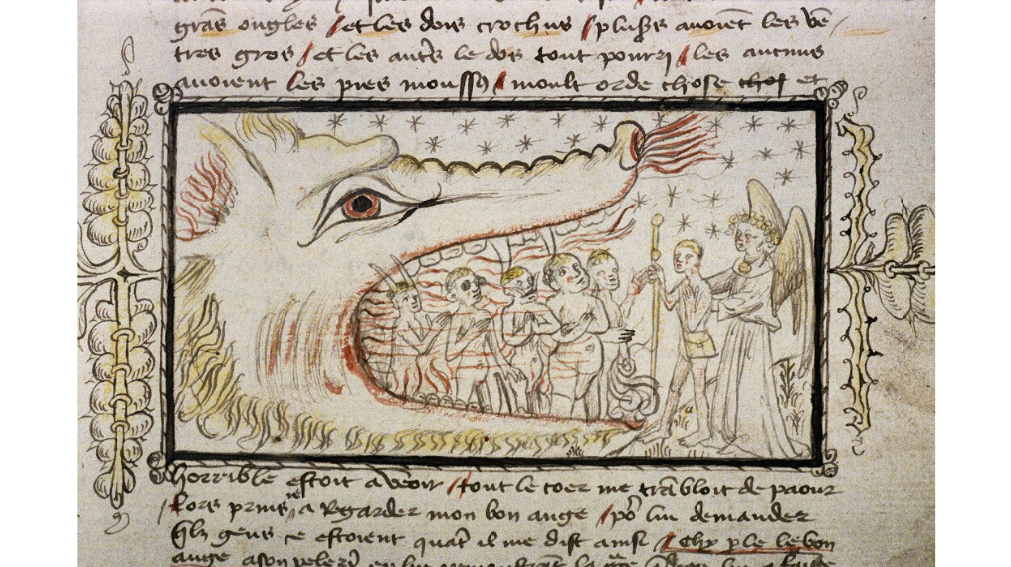 grās ongles et les dois crochus plusrs auoiēt les vē
tres gros et les autrs le dos tout pourri les aucuns
auoient les pies moussus moult orde chose chos et
horrible estoit a veoir tout le coer me trābloit de paour
Lors prins ie a Regarder mon bon ange po lui demander
qlz gens ce estoient quāt il me dist ainsi Chy ple le bon
ange a son pelerī